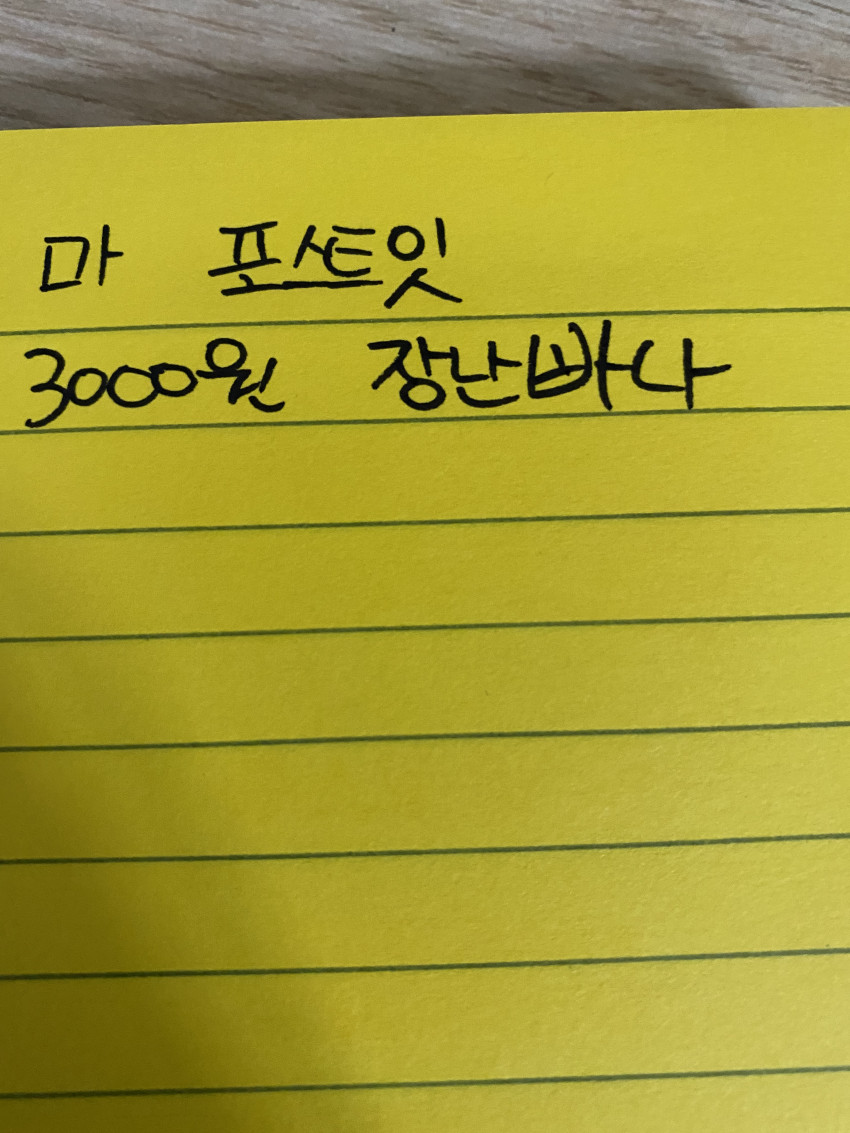 마 포스트잇
3000원 장난빠나